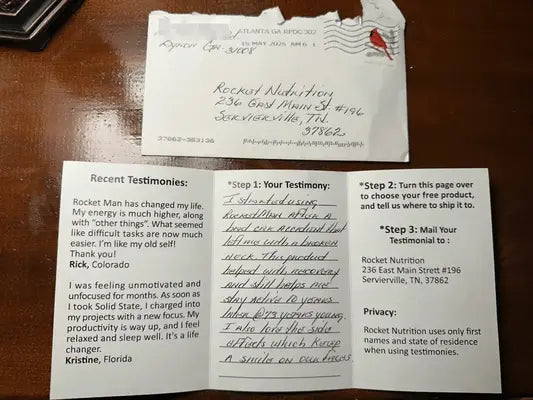 ATLANTA GA RPDC 302
15 MAY 2025 AM 6 1
Byron GA. 31008
Rocket Nutrition
236 East Main St. #196
Servierville, TN.
37862
37862-383136
Recent Testimonies:
Rocket Man has changed my life.
My energy is much higher, along
with “other things”. What seemed
like difficult tasks are now much
easier. I’m like my old self!
Thank you!
Rick, Colorado
I was feeling unmotivated and
unfocused for months. As soon as
I took Solid State, I charged into
my projects with a new focus. My
productivity is way up, and I feel
relaxed and sleep well. It's a life
changer.
Kristine, Florida
*Step 1: Your Testimony:
I started using
Rocket Man after a
bad car accident that
left me with a broken
neck. This product
helped with recovery
and still helps me
stay active 10 years
later @ 73 years young.
I also love the side
affects which keep
a smile on our faces
*Step 2: Turn this page over
to choose your free product,
and tell us where to ship it.
*Step 3: Mail Your
Testimonial to :
Rocket Nutrition
236 East Main Strett #196
Servierville, TN, 37862
Privacy:
Rocket Nutrition uses only first
names and state of residence
when using testimonies.